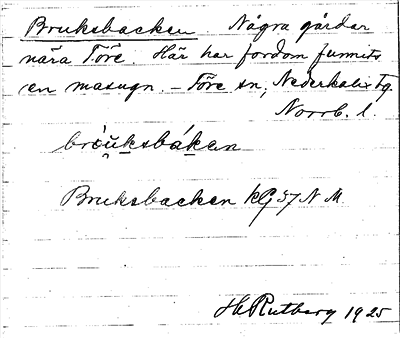 Bruksbacken Några gårdar
nära Töre. Här har fordom funnits
en masugn. – Töre sn, Nederkalix tg.
Norrb. l.
Bruksbacken kg 57 N M.
H Rutberg 1925